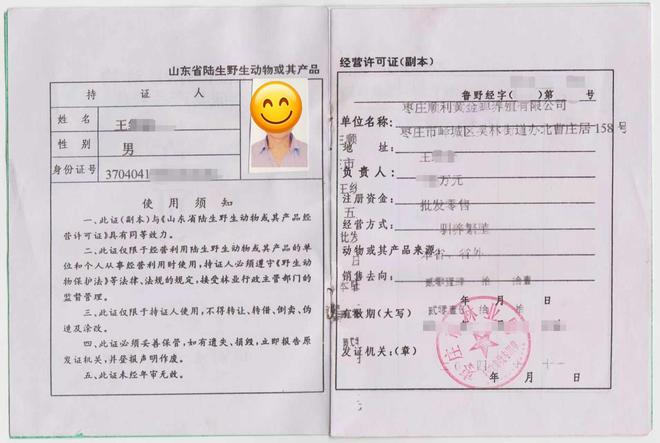 山东省陆生野生动物或其产品
持证人
姓名 王
性别 男
身份证号 3704041
使用须知
一、此证(副本)与《山东省陆生野生动物或其产品经
营许可证》具有同等效力。
二、此证仅限于经营利用陆生野生动物或其产品的单
位和个人从事经营利用时使用，持证人必须遵守《野生动
物保护法》等法律、法规的规定，接受林业行政主管部门的
监督管理。
三、此证仅限于持证人使用，不得转让、转借、倒卖、伪
造及涂改。
四、此证必须妥善保管，如有遗失、损毁，立即报告原
发证机关，并登报声明作废。
五、此证未经年审无效。
经营许可证(副本)
鲁野经字( )第 号
枣庄顺利黄金蟒养殖有限公司
单位名称：
枣庄市峄城区吴林街道办北曹庄居158号
地址：
王
负责人：
万元
注册资金：
批发零售
经营方式：
驯养繁殖
动物或其产品来源：
本省、省外
销售去向：
年 月 日
有效期(大写)
年 月 日
发证机关：(章)
年 月 日